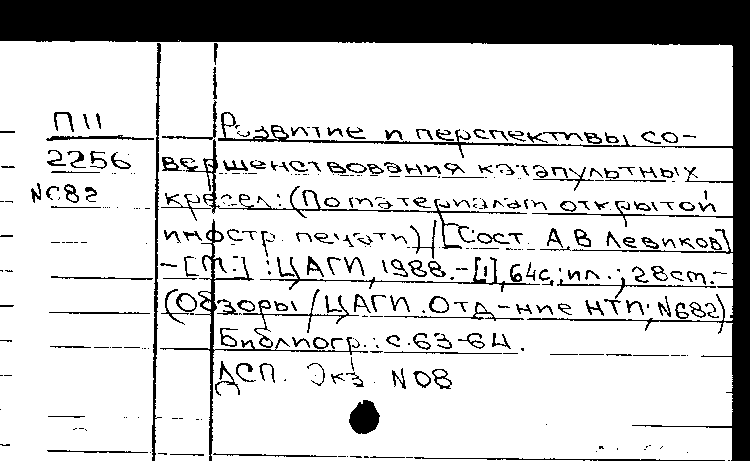 П11
2256
N682
Развитие и перспективы со-
вершенствования катапультных
кресел: (По материалам открытой
иностр. печати) / [Сост. А.В Левиков]
- [М.] : ЦАГИ, 1988. - [1], 64с.; ил.; 28см. -
(Обзоры / ЦАГИ. Отд-ние НТП; N682).
Библиогр.: с.63-64.
ДСП. Экз. N08